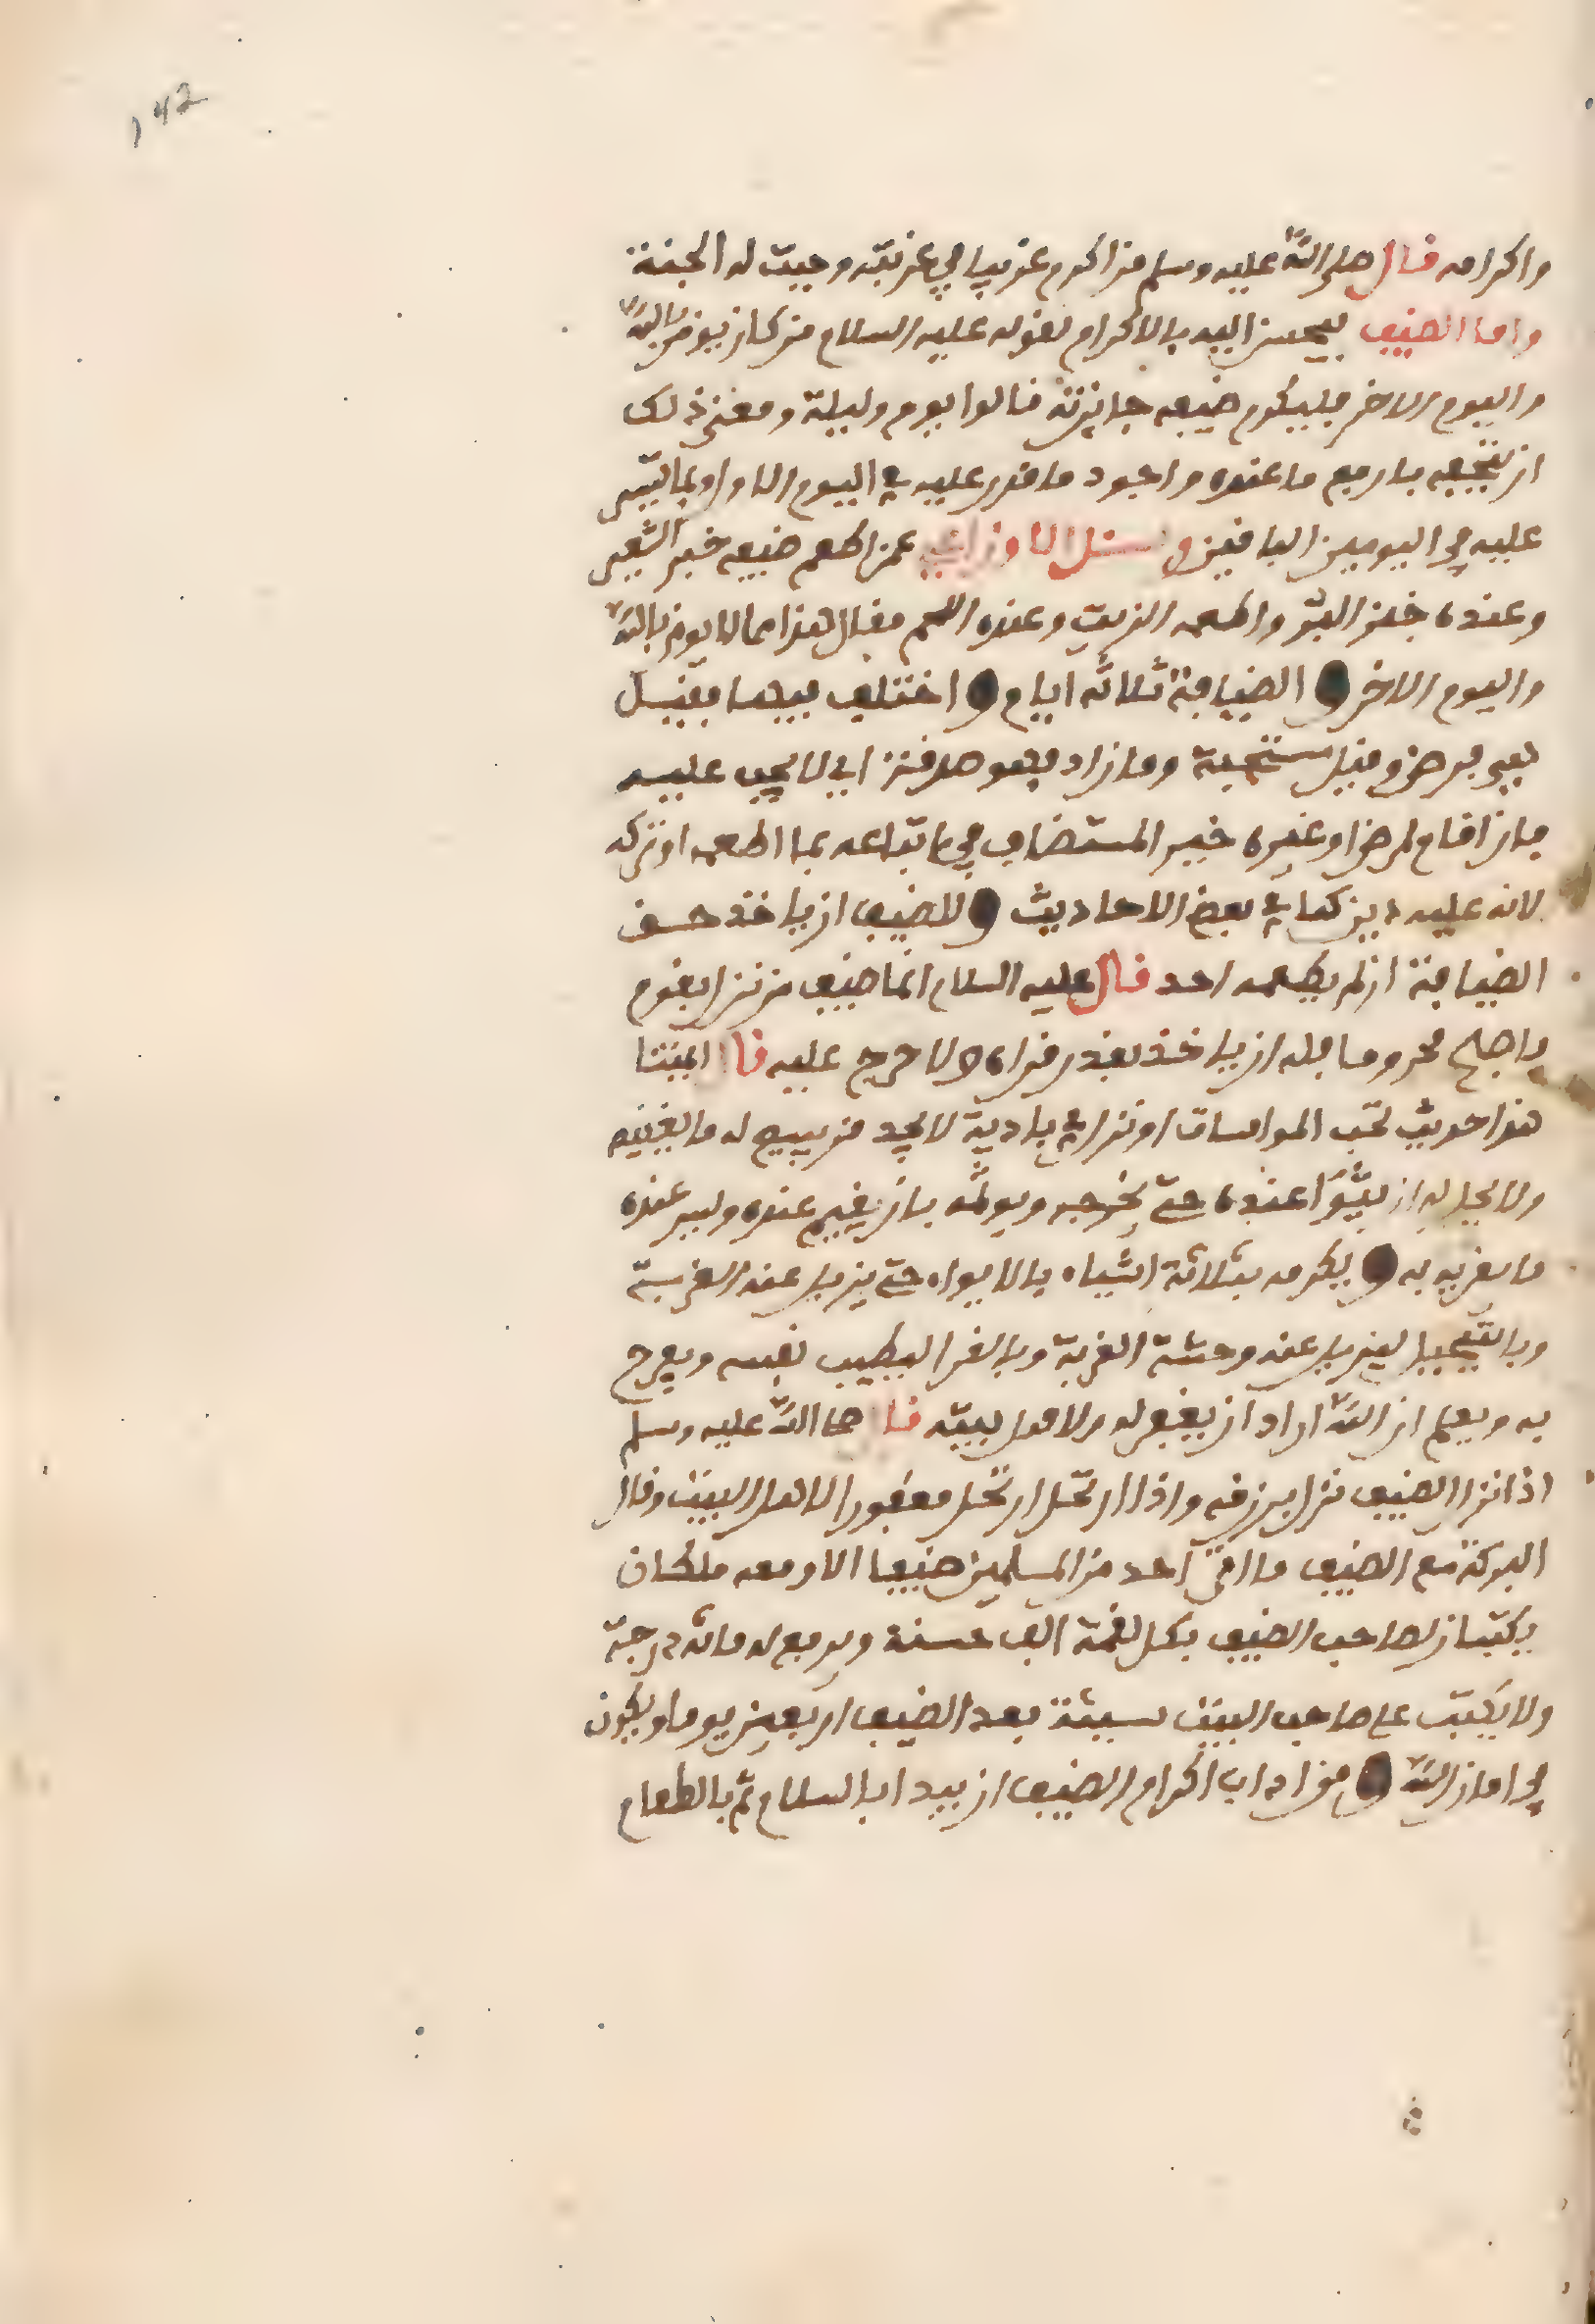 142
واكرامه قال صلى الله عليه وسلم من اكرم غريبا في غربته وجبت له الجنة
واما الضيف فيحسن اليه بالاكرام لقوله عليه السلام من كان يومن بالله
واليوم الاخر فليكرم ضيفه جايزته قالوا يوم وليلة ومعنى ذلك
ان يتحفه بارفع ما عنده واجود ما قدر عليه في اليوم الاول وبما تيسر
عليه في اليومين الباقين وسئل الاوزاعي عمن اطعم ضيفه خبز الشعير
وعنده خبز البر واطعمه الزيت وعنده اللحم فقال هذا مما لا يومن بالله
واليوم الاخر و الضيافة ثلاثة ايام و اختلف فيها فقيل
هي فرض وقيل مستحبة وما زاد فهو صدقة اي لا يجب عليه
فان اقام لمرض او غيره خير المستضاف في اتباعه بما اطعمه او تركه
لانه عليه دين كما في بعض الاحاديث و للضيف ان ياخذ حق
الضيافة ان لم يطعمه احد قال عليه السلام ايما ضيف من نزل بقوم
فاصبح محروما فله ان ياخذ بقدر قراه ولا حرج عليه قال
هذا حديث تجب المواسات او نزل في بادية لا يجد من يبيع له ما يغنيه
ولا يحل له ان يثوا عنده حتى يخرجه ويوثمه بان يقيم عنده وليس عنده
ما يقريه به و يكرمه بثلاثة اشياء بالايواء حتى يزيل عنه الغربة
وبالتعجيل ليزيل عنه وحشة الغربة وبالقرا ليطيب نفسه ويفرح
به ويعلم ان الله اراد ان يغفر له ولاهل بيته قال صلى الله عليه وسلم
اذا نزل الضيف نزل برزقه واذا ارتحل ارتحل مغفورا لاهل البيت وقال
البركة مع الضيف ما اتى احد من المسلمين ضيفا الا ومعه ملكان
يكتبان لصاحب الضيف بكل لقمة الف حسنة ويرفع له مائة درجة
ولا يكتب على صاحب البيت سيئة بعد الضيف اربعين يوما ويكون
في امان الله و من اداب اكرام الضيف ان يبدا بالسلام ثم بالطعام